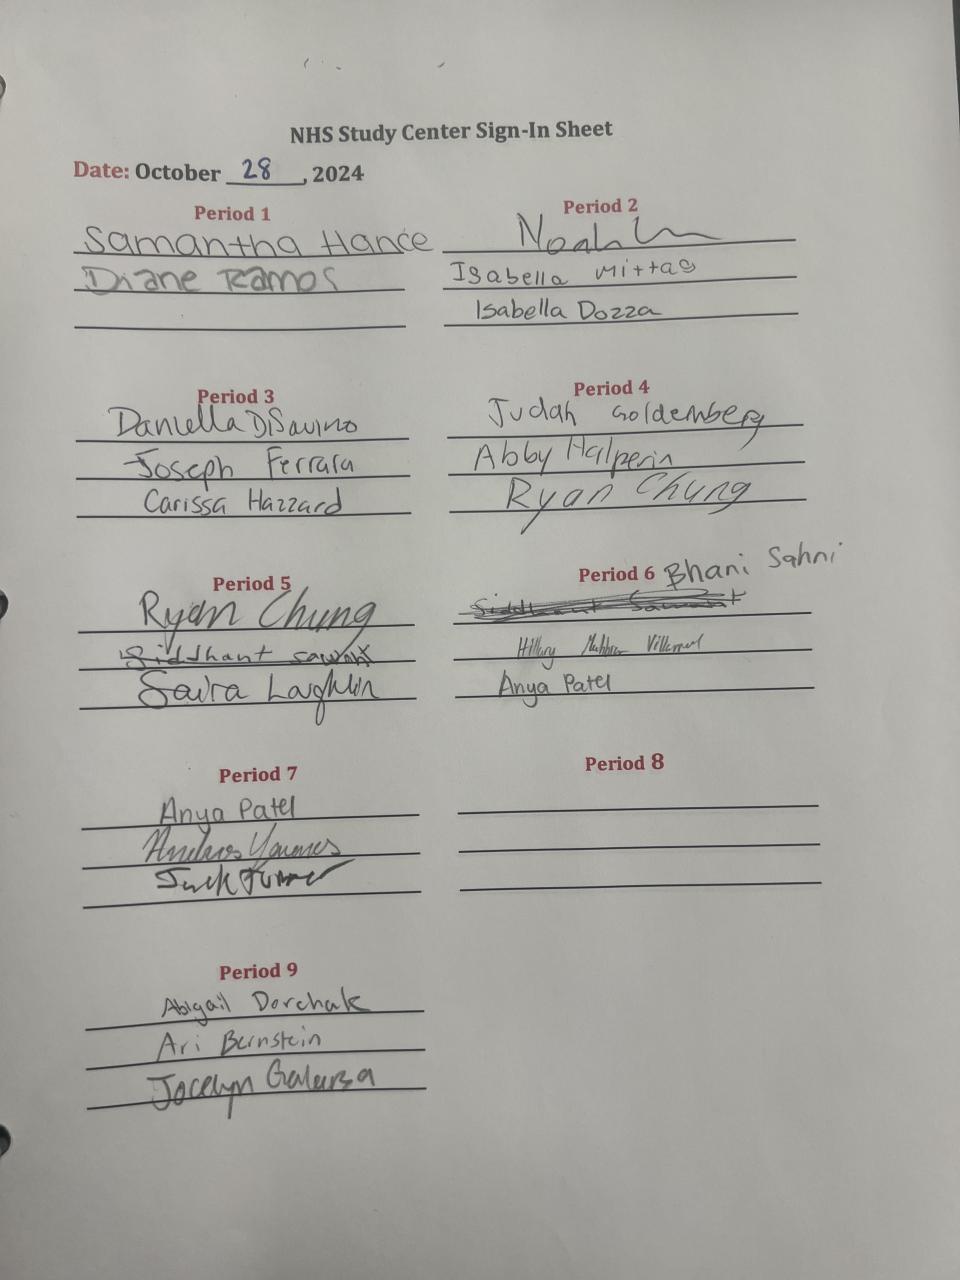 NHS Study Center Sign-In Sheet
Date: October 28, 2024
Period 1
Samantha Hance
Diane Ramos
Period 2
Noah
Isabella Mittas
Isabella Dozza
Period 3
Daniella DiSavino
Joseph Ferrara
Carissa Hazzard
Period 4
Judah Goldemberg
Abby Halperin
Ryan Chung
Period 5
Ryan Chung
Siddhant Sawant
Saira Laughlin
Period 6 Bhani Sahni
Siddhant Sawant
Hillary
Anya Patel
Period 7
Anya Patel
Andreas Younnes
Jack Turner
Period 8
Period 9
Abigail Dorchak
Ari Bernstein
Jocelyn Galarza